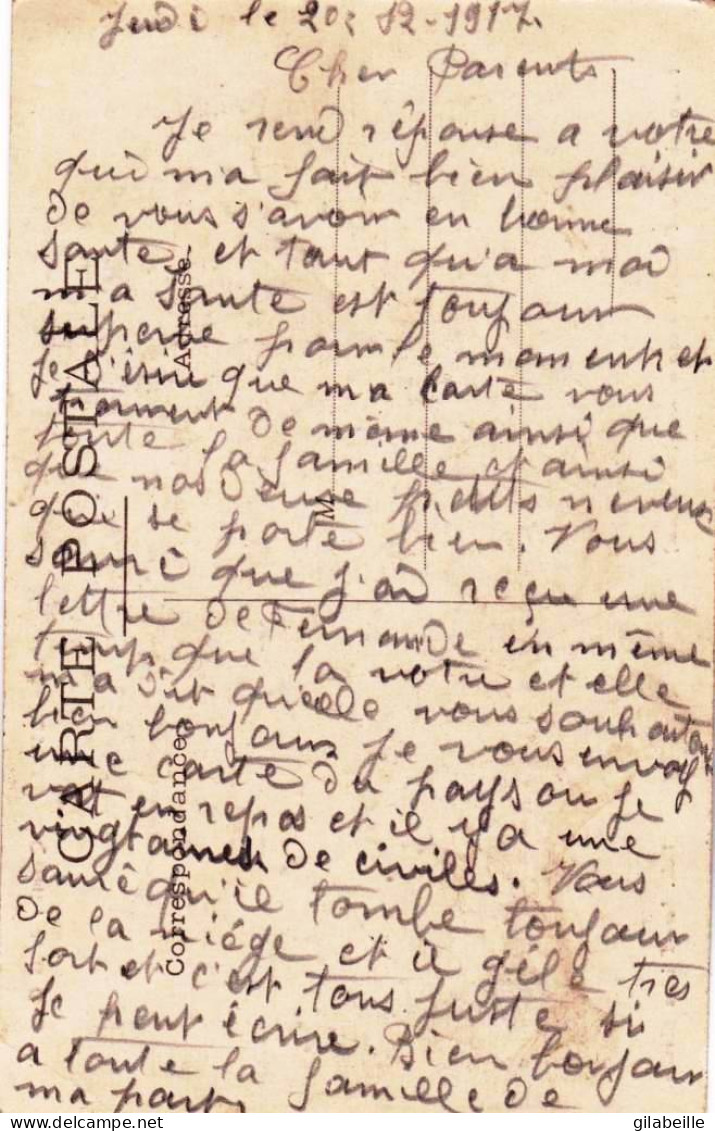 Jeudi le 20: 12-1917.
Cher Parents
Je rend réponse a votre
qui ma fait bien plaisir
de vous s'avoir en bonne
sante. et tant qu'a moi
ma sante est toujour
superbe pour le moment et
Je d'esire que ma carte vous
trouvent de même ainsi que
toute la famille et ainsi
que nos deux petits neveux
qui se porte bien. Vous
sauré que j'ai reçu une
lettre de Fernande en même
temp que la votre et elle
m'a dit qu'elle vous souhaitait
bien bonjour. Je vous envoy
une carte du pays ou je
vest en repos et il y a une
vingtaines de civiles. Vous
sauré qu'il tombe toujour
de la niége et il géle tres
fort et c'est tous juste si
Je peut écrire. Bien bonjour
a toute la famille de
ma part,
CARTE POSTALE
Correspondance
Adresse
M
gilabeille